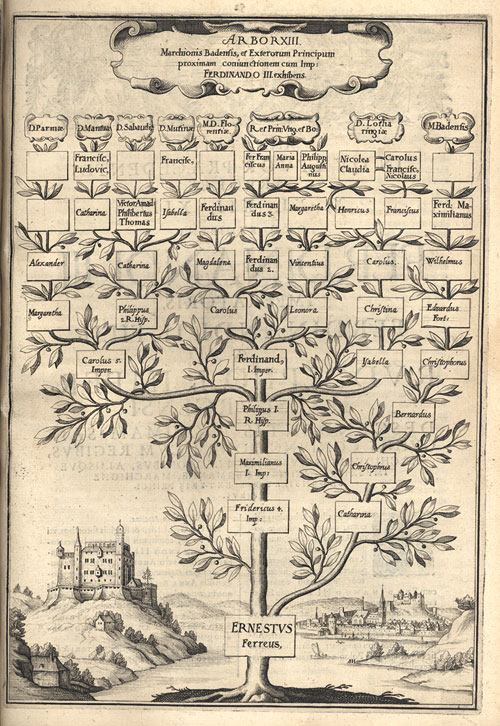 ARBOR XIII.
Marchionis Badensis, et Exterorum Principum
proximam coniunctionem cum Imp:
FERDINANDO III. exhibens.
D. Parmæ
D. Mantuæ
D. Sabaudiæ
D. Mutinæ
M. D. Flo-
rentiæ
R. et Prin: Vng. et Bo:
D. Lotha
ringiæ
M. Badensis
Francisc,
Ludovic,
Francisc,
Fer Fran
ciscus
Maria
Anna
Philipp
Augusti-
nus
Nicolea
Claudia
Carolus
Francisc,
Nicolaus
Catharina
Victor Amad
Philibertus
Thomas
Isabella
Ferinan
dus
Ferdinan
dus 3.
Margaretha
Henricus
Franciscus
Ferd: Ma-
ximilianus
Alexander
Catharina
Magdalena
Ferdinan
dus 2.
Vincentius
Carolus,
Wilhelmus
Margaretha
Philippus
2. R. Hisp.
Carolus
Leonora
Christina
Eduardus
Fort:
Carolus 5.
Imper.
Ferdinand,
I. Imper.
Isabella
Christophorus
Philipus I.
R. Hisp.
Bernardus
Maximilianus
I. Imp:
Christophrus
Fridericus 4.
Imp:
Catharina
ERNESTVS
Ferreus,